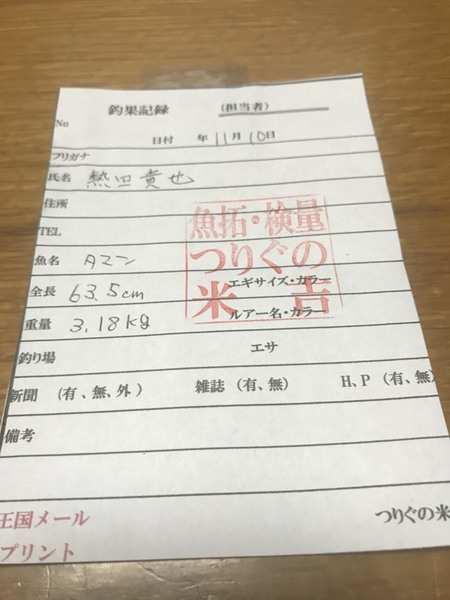 釣果記録 (担当者)
No
日付 年11月10日
フリガナ
氏名 熱田貴也
住所
TEL
魚名 タマン
全長 63.5cm
重量 3.18kg
魚拓・検量
つりぐの
米吉
エギサイズ・カラー
ルアー名・カラー
釣り場 エサ
新聞 (有、無、外) 雑誌 (有、無) H,P (有、無)
備考
王国メール つりぐの米
プリント